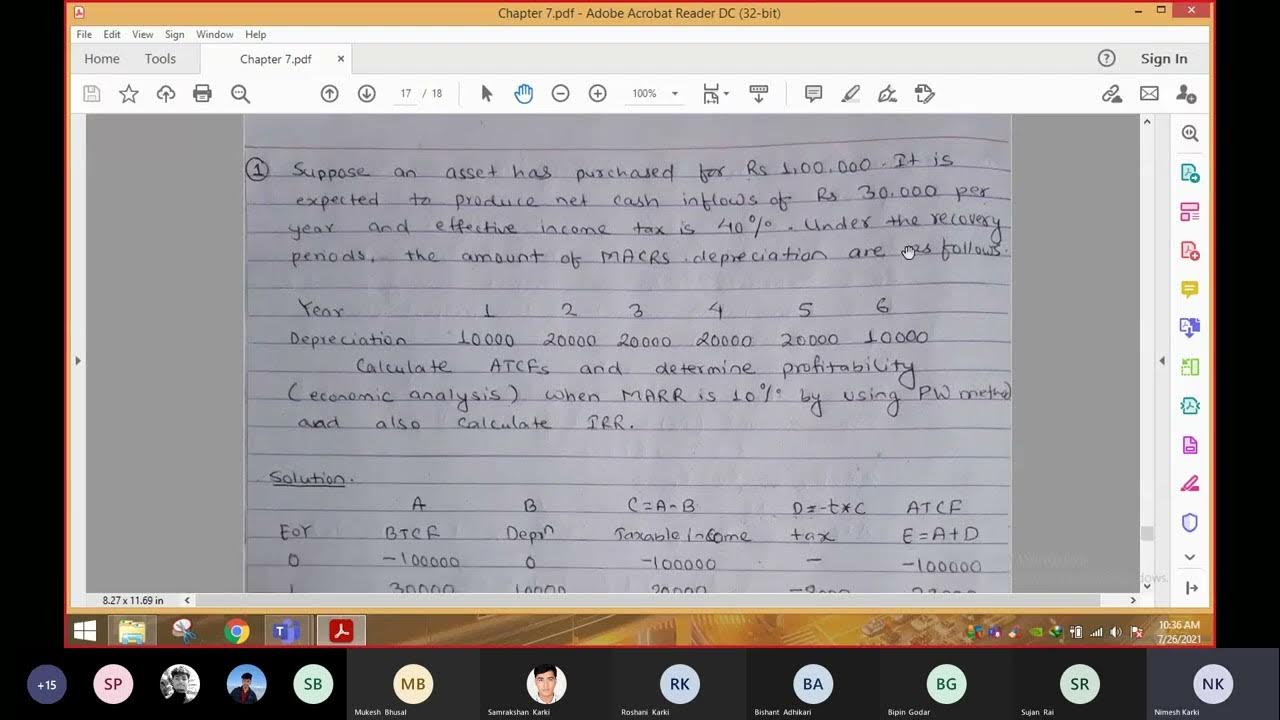 Chapter 7.pdf - Adobe Acrobat Reader DC (32-bit)
File Edit View Sign Window Help
Home Tools Chapter 7.pdf × Sign In
17 / 18 100%
① Suppose an asset has purchased for Rs 1,00,000. It is
expected to produce net cash inflows of Rs 30,000 per
year and effective income tax is 40%. Under the recovery
periods, the amount of MACRS depreciation are as follows.
Year 1 2 3 4 5 6
Depreciation 10000 20000 20000 20000 20000 10000
Calculate ATCFs and determine profitability
(economic analysis) when MARR is 10% by using PW metho
and also calculate IRR.
Solution.
A B C=A-B D=-t*C ATCF
EOY BTCF Deprn Taxable income tax E=A+D
0 -100000 0 -100000 - -100000
1 30000 10000 20000
8.27 x 11.69 in
10:36 AM
7/26/2021
+15 SP SB MB RK BA BG SR NK
Mukesh Bhusal Samrakshan Karki Roshani Karki Bishant Adhikari Bipin Godar Sujan Rai Nimesh Karki